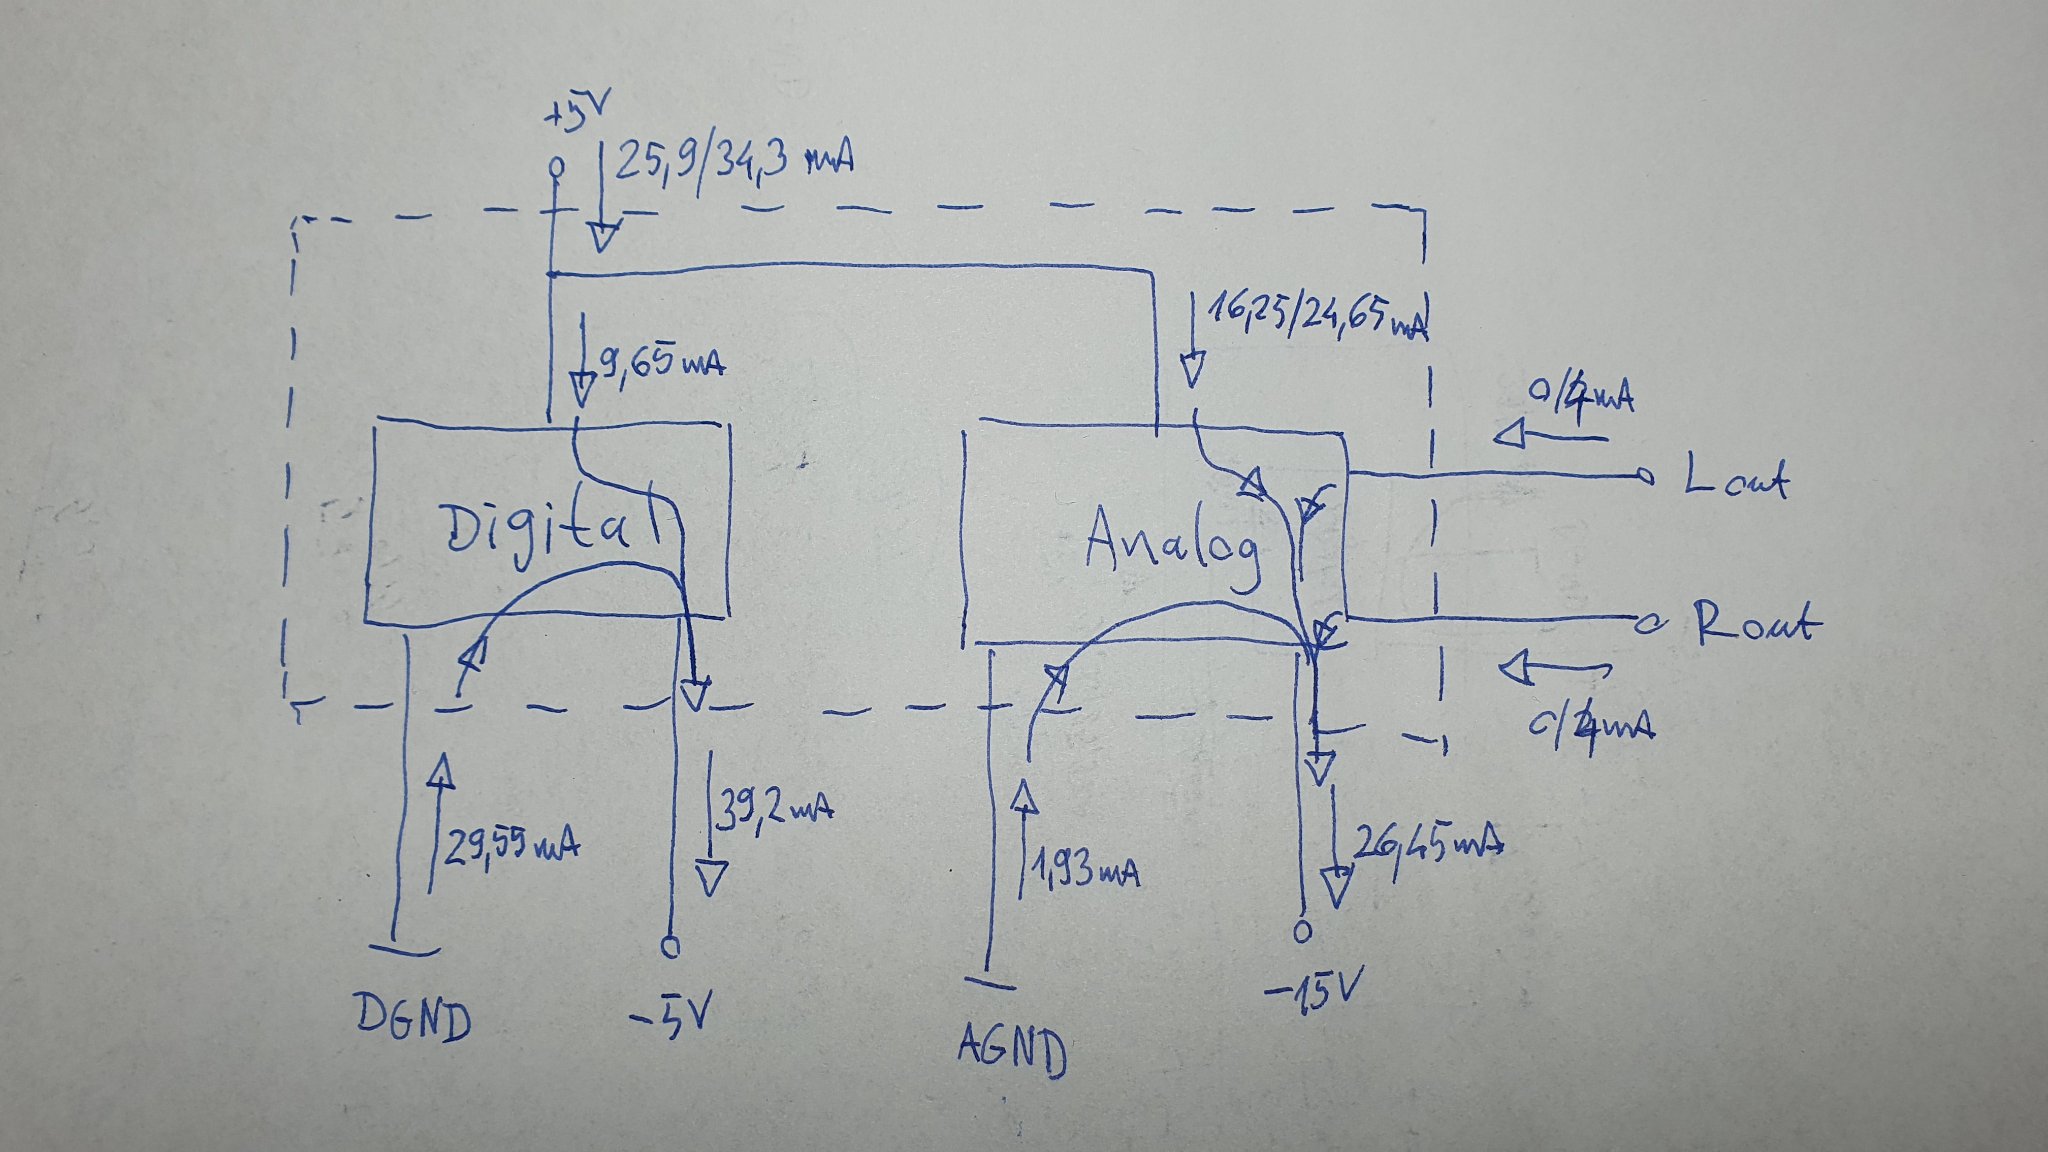 +5V
25,9/34,3 mA
16,25/24,65mA
9,65mA
0/4mA
Digital
Analog
Lout
Rout
0/4mA
29,55mA
39,2mA
1,93mA
26,45mA
DGND
-5V
AGND
-15V